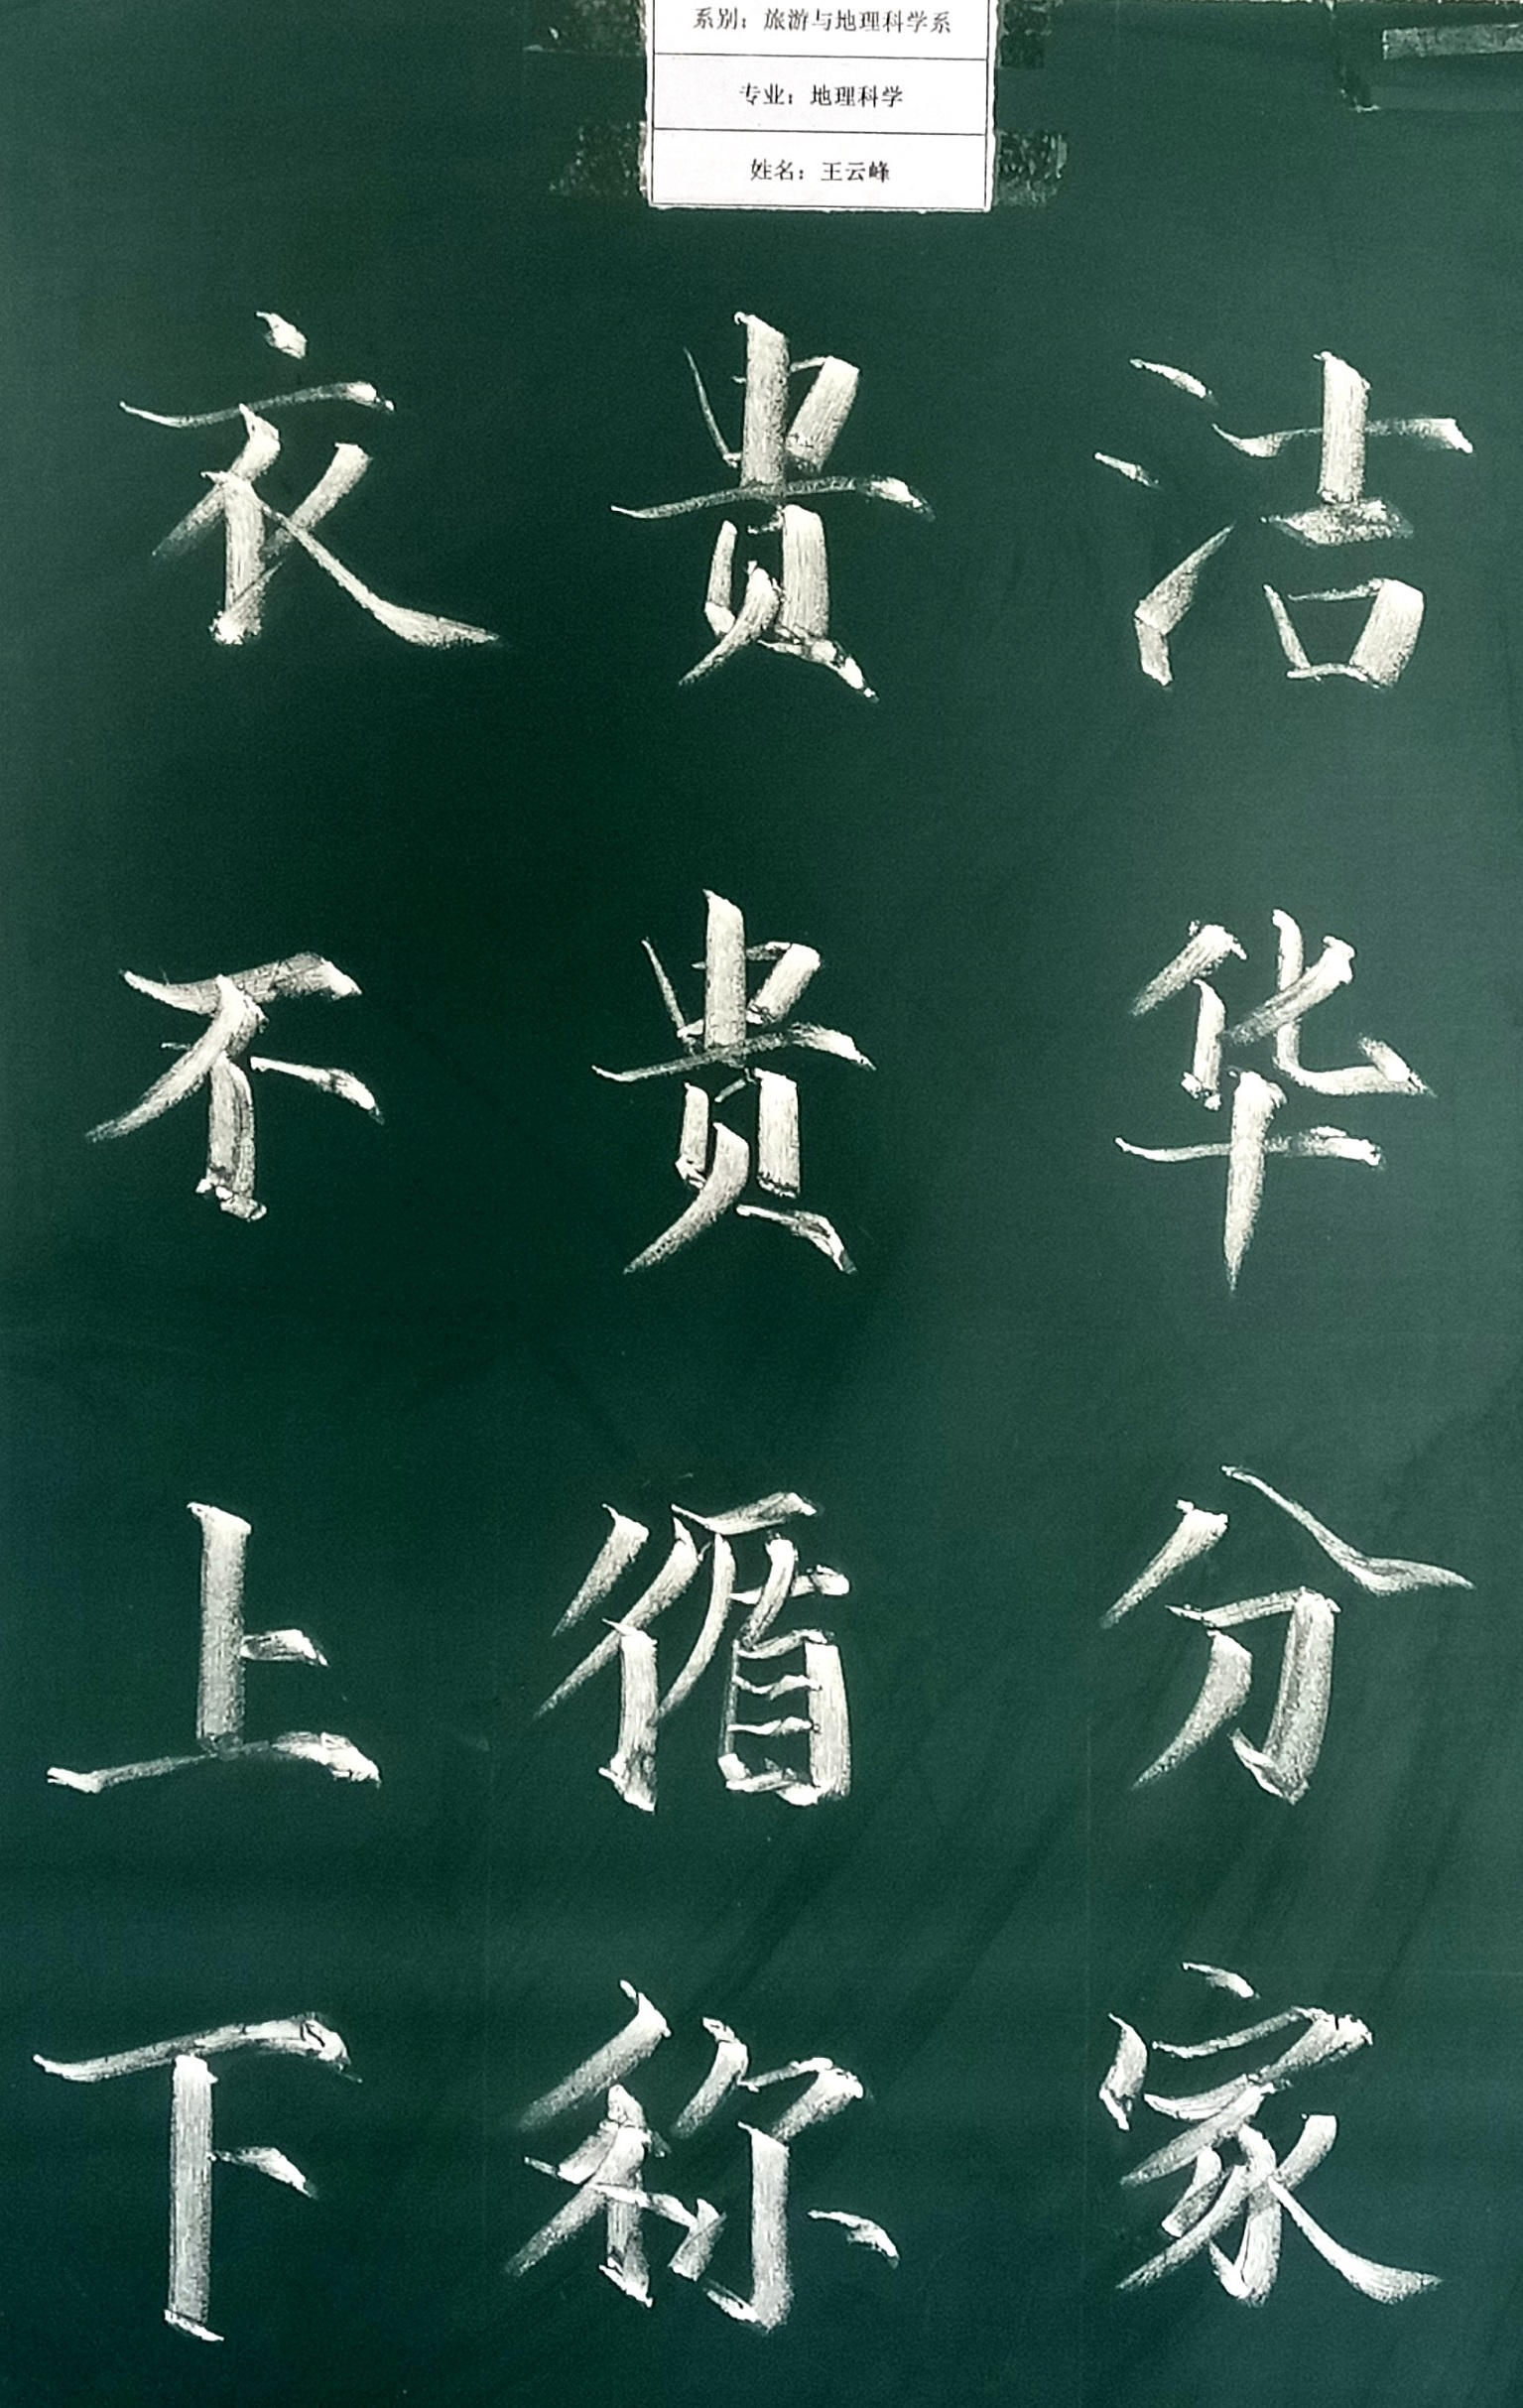 系别：旅游与地理科学系
专业：地理科学
姓名：王云峰
衣贵洁
不贵华
上循分
下称家